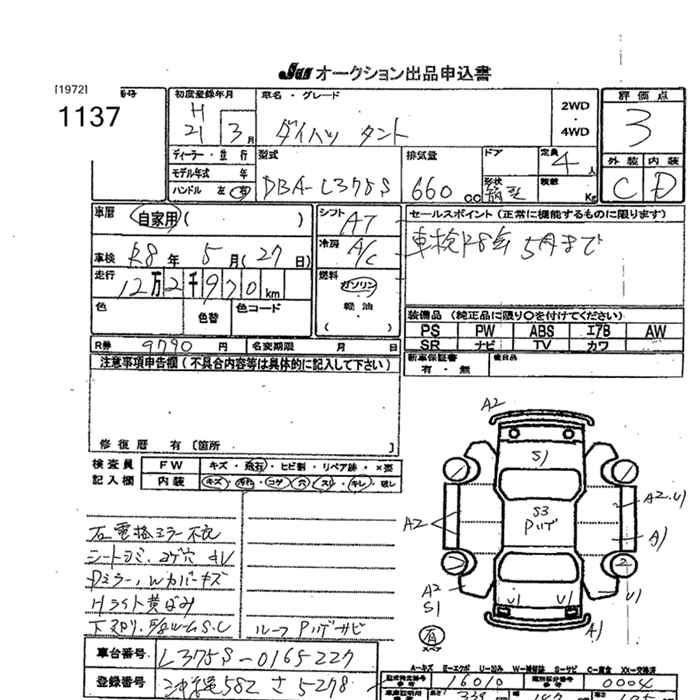 JU オークション出品申込書
[1972]
1137
初度登録年月
H 21 3月
車名・グレード
ダイハツ タント
2WD
・
4WD
評価点
3
外装 内装
C D
ディーラー・並行
モデル年式 年
ハンドル 左 右
型式
DBA-L375S
排気量
660 cc
ドア
形状 箱型
定員 4 人
積載 Kg
車歴
自家用 ( )
車検 R8 年 5 月 ( 27 日)
走行
12万2千970 km
色
色替
色コード
シフト AT
冷房 A/C
燃料
ガソリン
軽油
( )
セールスポイント (正常に機能するものに限ります)
車検R8年5月まで
装備品 (純正品に限り○を付けてください)
PS PW ABS エアB AW
SR ナビ TV カワ
新車保証書
有・無
後日品
R券 9790 円
名変期限 月 日
注意事項申告欄 (不具合内容等は具体的に記入して下さい)
修復歴 有 [箇所 ]
検査員
記入欄
FW キズ・飛石・ヒビ割・リペア跡・×要
内装 キズ・汚れ・コゲ・穴・スレ・キレ・破レ
右電格ミラー不良
シートヨゴミ・コゲ穴 キレ
Dミラー, Wカバーキズ
Hライト黄ばみ
ルーフ Pハゲサビ
A2
S1
S3
Pハゲ
A2
A2.U1
A1
A2
S1
U1
U1
U1
A1
有
スペア
車台番号 L375S-0165227
登録番号 沖縄582 さ 5278
A-キズ E-エクボ U-凹み W-補修跡 S-サビ C-腐食 XX-交換済
16010
0004